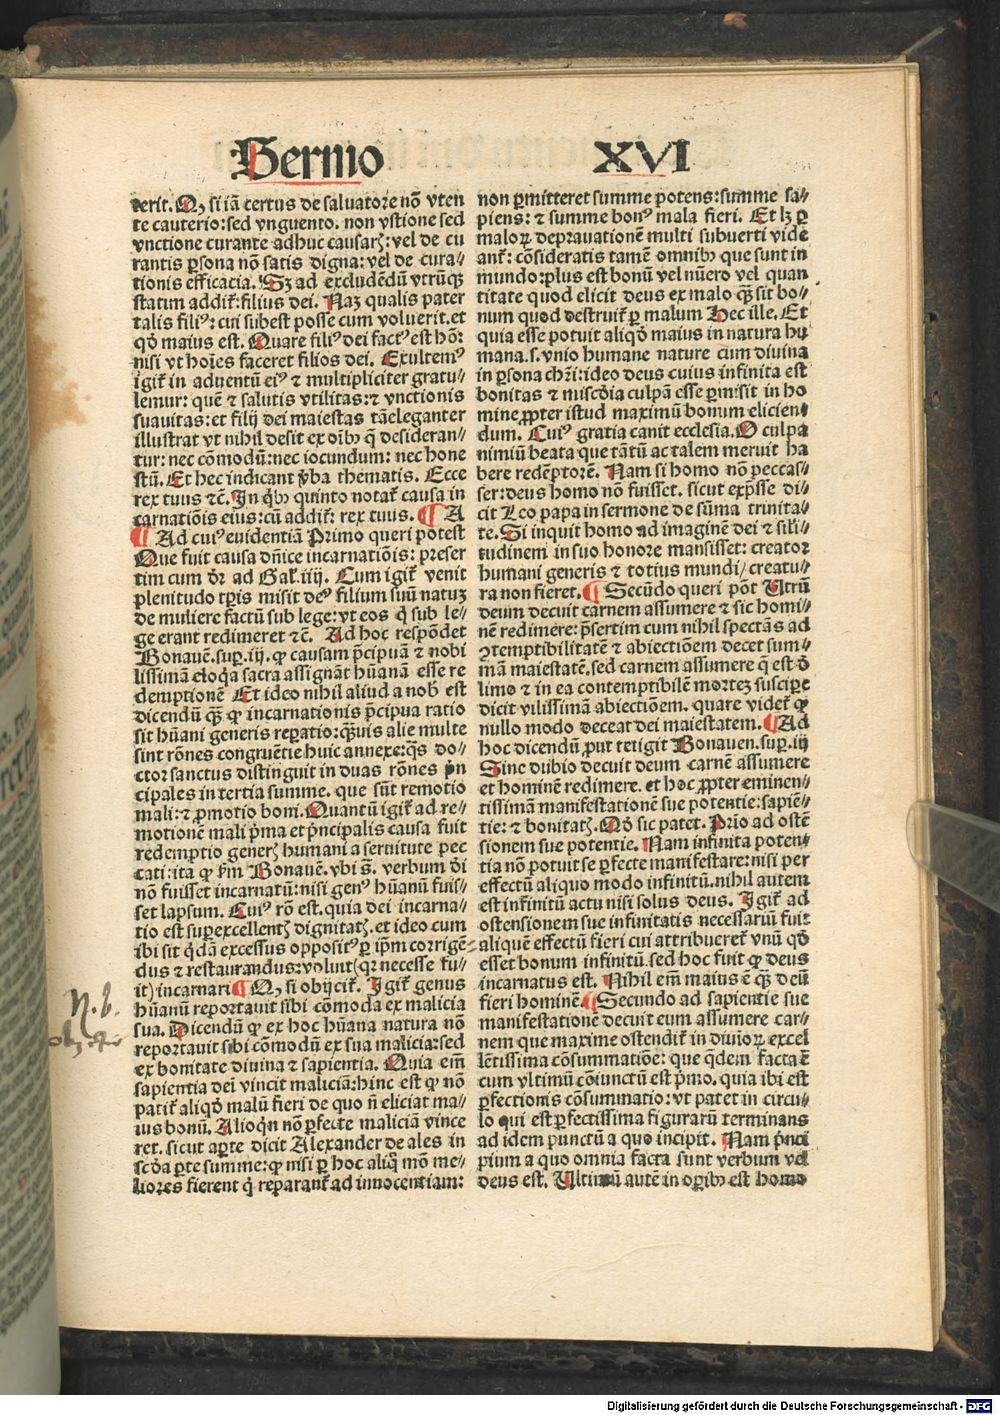 Sermo XVI
uerit. Qꝫ si iã certus de saluatore nõ vten
te cauterio: sed vnguento. non vstione sed
vnctione curante adhuc causarꝭ: vel de cu
rantis ꝑsona nõ satis digna: vel de cura⸗
tionis efficacia. Sꝫ ad excludẽdũ vtrũqꝫ
statum addiť: filius dei. Naꝫ qualis pater
talis filiꝰ: cui subest posse cum voluerit. et
qđ maius est. Quare filiꝰ dei factꝰ est hõ:
nisi vt hoīes faceret filios dei. Exultemꝰ
igiť in aduentũ eiꝰ ⁊ multipliciter gratu⸗
lemur: quẽ ⁊ salutis vtilitas: ⁊ vnctionis
suauitas: et filij dei maiestas tãeleganter
illustrat vt nihil desit ex oĩbꝰ q̃ desideran⸗
tur: nec cõmodũ: nec iocundum: nec hone
stũ. Et hec indicant ꝟba thematis. Ecce
rex tuus ⁊c̃. In q̇bꝰ quinto notať causa in
carnatiõis eius: cũ addiť: rex tuus. ¶ A
¶ Ad cuiꝰ euidentiã Primo queri potest
Que fuit causa dñice incarnatiõis: preser
tim cum dr̃ ad Gal. iiij. Cum igiť venit
plenitudo tp̃is misit deꝰ filium suũ natuꝫ
de muliere factũ sub lege: vt eos q̇ sub le⸗
ge erant redimeret ⁊c̃. Ad hoc respõdet
Bonauẽ. suꝑ. iij. ꝙ causam p̃cipuã ⁊ nobi
lissimã eloq̇a sacra assignãt hũanã esse re
demptionẽ Et ideo nihil aliud a nob̃ est
dicendũ q̃ꝫ ꝙ incarnationis p̃cipua ratio
sit hũani generis reꝑatio: q̃uis alie multe
sint rõnes congruẽtie huic annexe: q̃s do⸗
ctor sanctus distinguit in duas rõnes p̃n
cipales in tertia summe. que sũt remotio
mali: ⁊ ꝓmotio boni. Quantũ igiť ad re⸗
motionẽ mali p̃ma et p̃ncipalis causa fuit
redemptio generꝭ humani a seruitute pec
cati: ita ꝙ ẜm Bonauẽ. vbi s̃. verbum đi
nõ fuisset incarnatũ: nisi genꝰ hũanũ fuis⸗
set lapsum. Cuiꝰ rõ est. quia dei incarna⸗
tio est suꝑexcellentꝭ dignitatꝭ. et ideo cum
ibi sit q̇dã excessus oppositꝰ ꝑ ip̃m corrigẽ⸗
dus ⁊ restaurandus: voluit (qꝛ necesse fu⸗
it) incarnari ¶ Qꝫ si obijciť. Igiť genus
hũanũ reportauit sibi cõmoda ex malicia
sua. Dicendũ ꝙ ex hoc hũana natura nõ
reportauit sibi cõmodũ ex sua malicia: sed
ex bonitate diuina ⁊ sapientia. Quia em̃
sapientia dei vincit maliciã: hinc est ꝙ nõ
patiť aliqđ malũ fieri de quo ñ eliciat ma⸗
ius bonũ. Alioq̇n nõ ꝑfecte maliciã vince
ret. sicut aꝑte dicit Alexander de ales in
scđa ꝑte summe: ꝙ nisi ꝑ hoc aliq̃ mõ me⸗
liores fierent q̇ reparanť ad innocentiam:
non ꝑmitteret summe potens: summe sa⸗
piens: ⁊ summe bonꝰ mala fieri. Et lꝫ ꝑ
maloꝝ deprauationẽ multi subuerti vide
anť: cõsideratis tamẽ omnibꝰ que sunt in
mundo: plus est bonũ vel nũero vel quan
titate quod elicit deus ex malo q̃ꝫ sit bo⸗
num quod destruiť ꝑ malum Hec ille. Et
quia esse potuit aliqđ maius in natura hu
mana. s. vnio humane nature cum diuina
in ꝑsona chr̃i: ideo deus cuius infinita est
bonitas ⁊ miscđia culpã esse ꝑmisit in ho
mine ꝓpter istud maximũ bonum elicien
dum. Cuiꝰ gratia canit ecclesia. O culpa
nimiũ beata que tãtũ ac talem meruit ha
bere redẽptorẽ. Nam si homo nõ peccas⸗
set: deus homo nõ fuisset. sicut exp̃sse di⸗
cit Leo papa in sermone de sũma trinita⸗
te. Si inquit homo ad imaginẽ dei ⁊ sili⸗
tudinem in suo honore mansisset: creator
humani generis ⁊ totius mundi / creatu⸗
ra non fieret. ¶ Secũdo queri põt Utrũ
deum decuit carnem assumere ⁊ sic homi⸗
nẽ redimere: p̃sertim cum nihil spectãs ad
ꝯtemptibilitatẽ ⁊ abiectiõem decet sum⸗
mã maiestatẽ. sed carnem assumere q̃ est đ
limo ⁊ in ea contemptibilẽ morteꝫ suscipe
dicit vilissimã abiectiõem. quare videť ꝙ
nullo modo deceat dei maiestatem. ¶ Ad
hoc dicendũ ꝓut tetigit Bonauen. suꝑ. iij
Sine dubio decuit deum carnẽ assumere
et hominẽ redimere. et hoc ꝓpter eminen⸗
tissimã manifestationẽ sue potentie: sapiẽ⸗
tie: ⁊ bonitatꝭ. Qđ sic patet. Primo ad ostẽ
sionem sue potentie. Nam infinita poten⸗
tia nõ potuit se ꝑfecte manifestare: nisi per
effectũ aliquo modo infinitũ. nihil autem
est infinitũ actu nisi solus deus. Igiť ad
ostensionem sue infinitatis necessariũ fuit
aliquẽ effectũ fieri cui attribuereť vnũ qđ
esset bonum infinitũ. sed hoc fuit ꝙ deus
incarnatus est. Nihil em̃ maius ẽ q̃ꝫ deũ
fieri hominẽ. ¶ Secundo ad sapientie sue
manifestationẽ decuit eum assumere car⸗
nem que maxime ostendiť in diuioꝝ excel
lẽtissima cõsummatiõe: que q̇dem facta ẽ
cum vltimũ cõiunctũ est p̃mo. quia ibi est
ꝑfectionis cõsummatio: vt patet in circu⸗
lo qui est ꝑfectissima figurarũ terminans
ad idem punctũ a quo incipit. Nam p̃nci
pium a quo omnia facta sunt verbum vel
deus est. Ultimũ autẽ in oꝑibꝰ est homo
N. b.
Digitalisierung gefördert durch die Deutsche Forschungsgemeinschaft - DFG